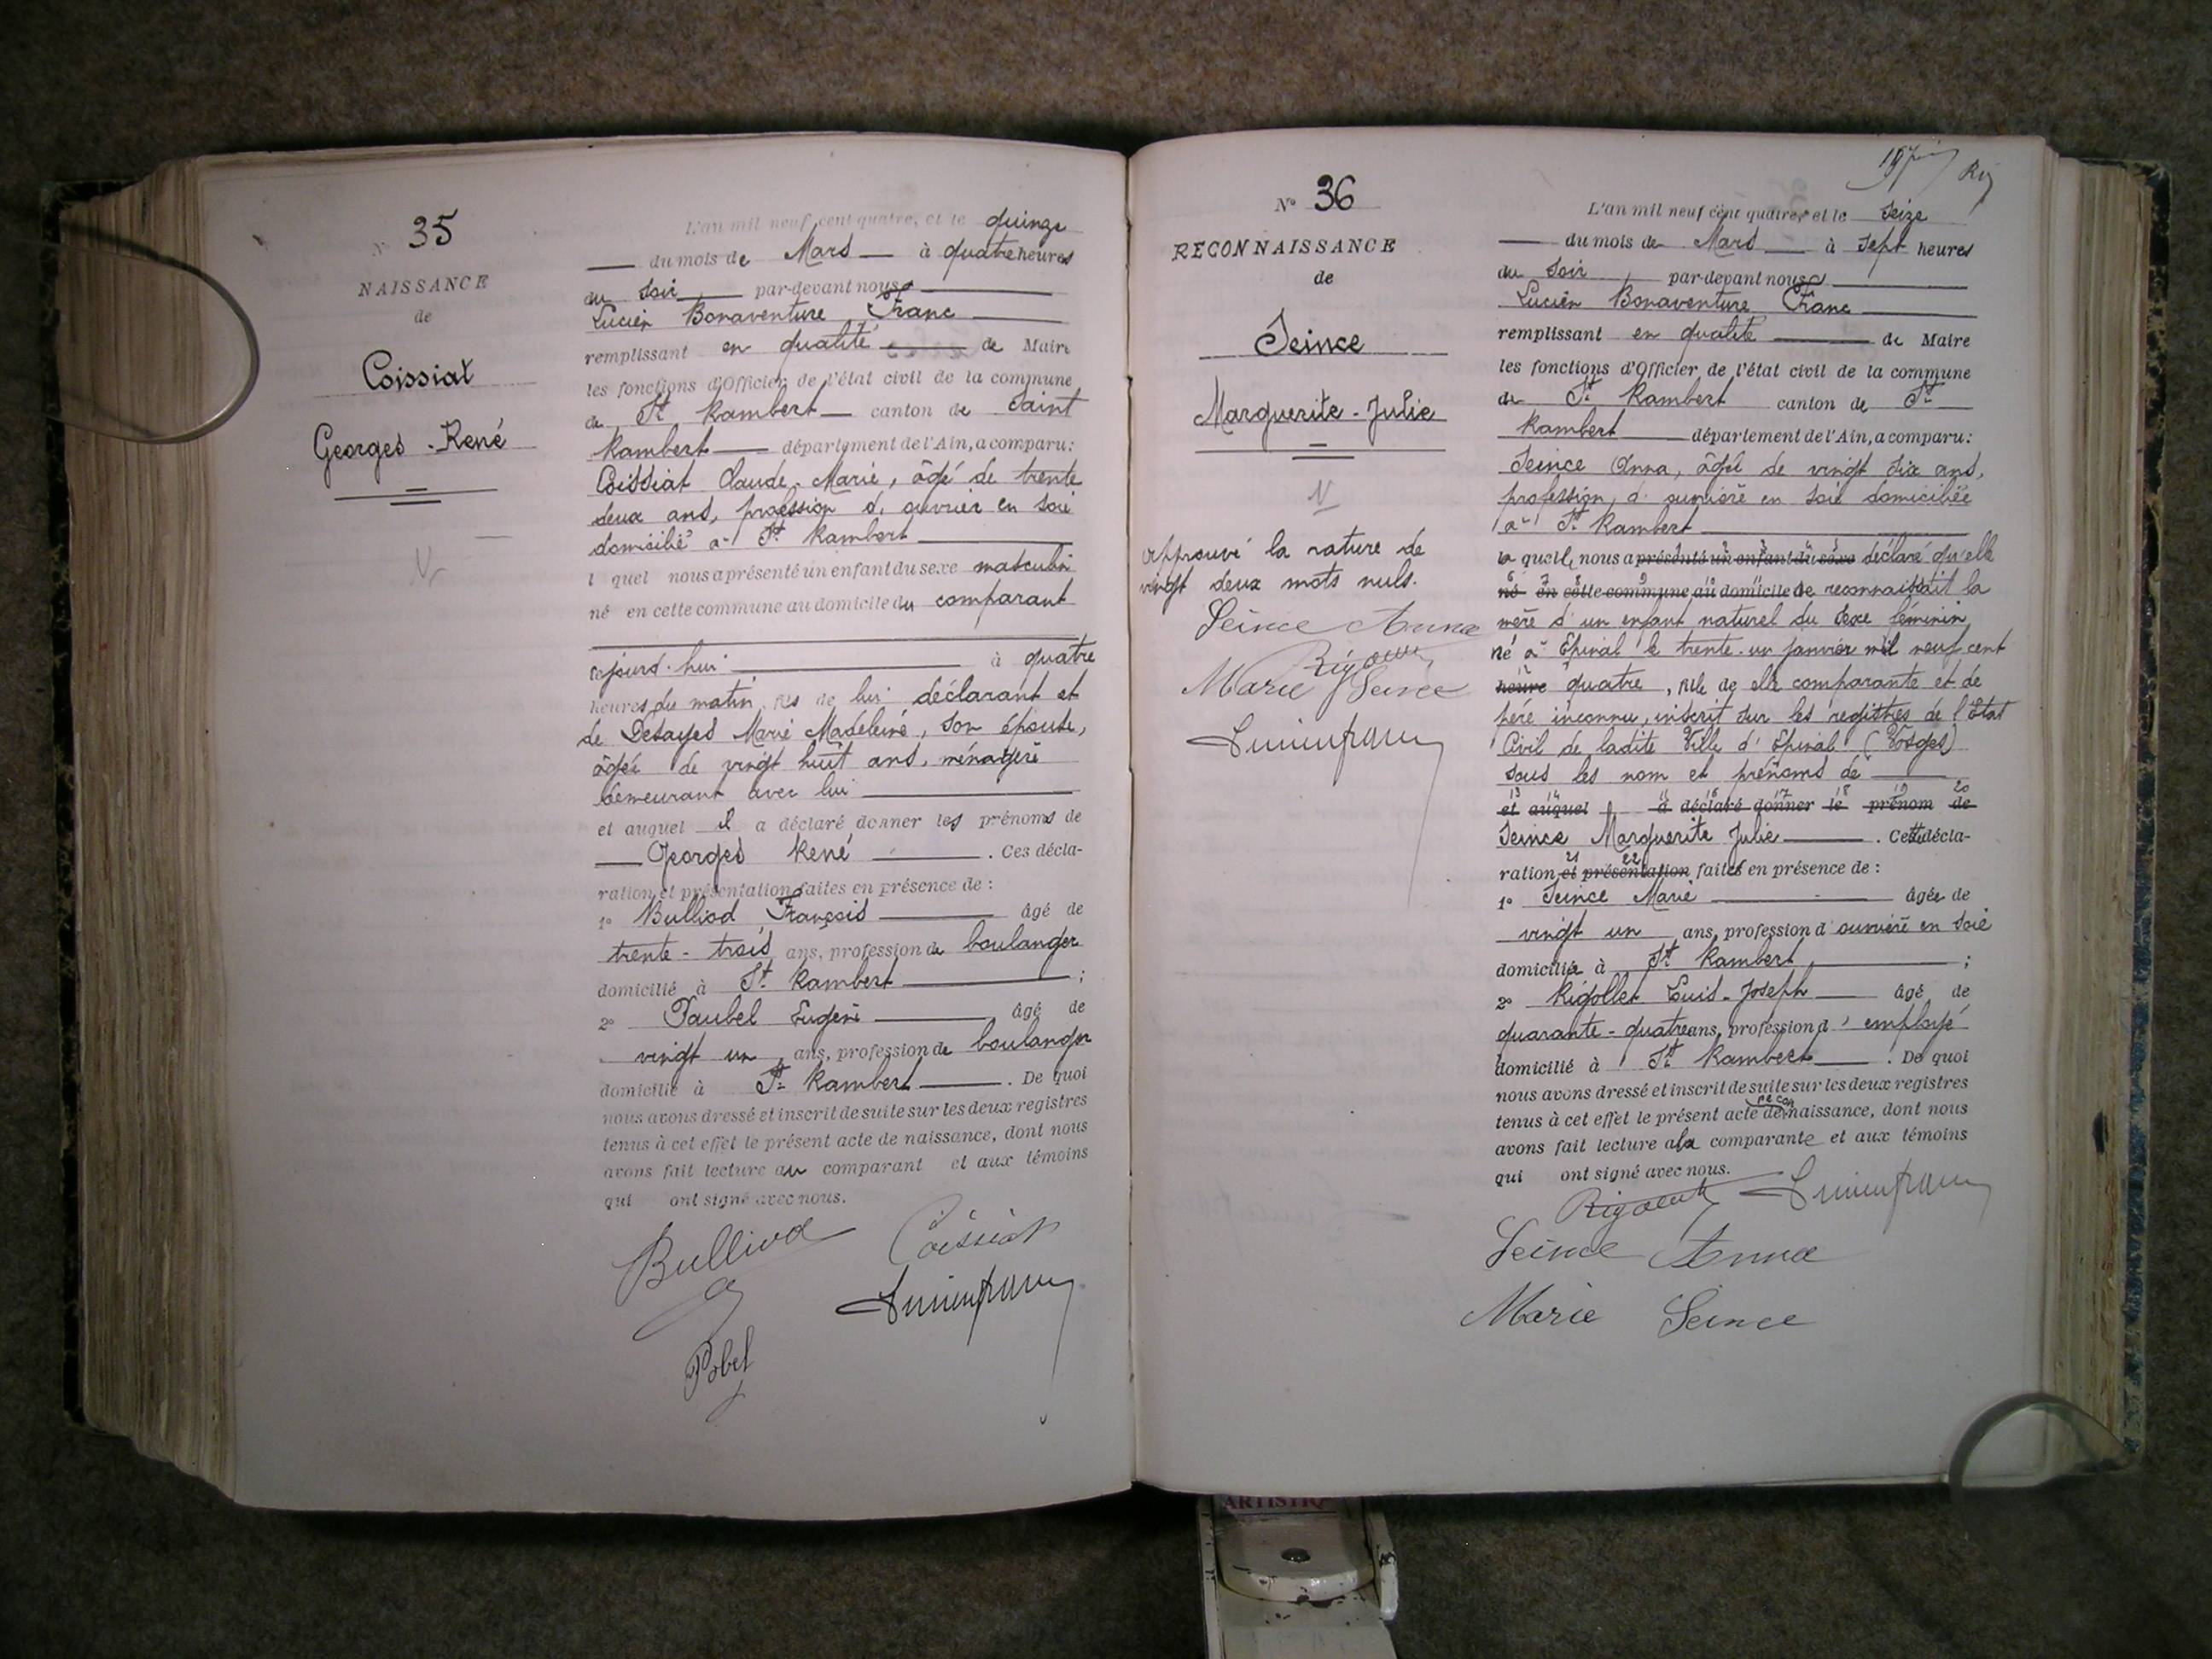 N° 35
NAISSANCE
de
Coissiat
Georges-René
L'an mil neuf cent quatre, et le quinze
du mois de Mars à quatre heures
du soir par-devant nous
Lucien Bonaventure Franc
remplissant en qualité de Maire
les fonctions d'Officier de l'état civil de la commune
de St Rambert canton de Saint
Rambert département de l'Ain, a comparu:
Coissiat Claude-Marie, âgé de trente
deux ans, profession d'ouvrier en soie
domicilié à St Rambert
lequel nous a présenté un enfant du sexe masculin
né en cette commune au domicile du comparant
aujourd'hui à quatre
heures du matin, fils de lui déclarant et
de Desayes Marie Madeleine, son épouse,
âgée de vingt huit ans, ménagère
demeurant avec lui
et auquel il a déclaré donner les prénoms de
Georges René. Ces décla-
ration et présentation faites en présence de :
1° Bulliod François âgé de
trente-trois ans, profession de boulanger
domicilié à St Rambert ;
2° Paubel Eugène âgé de
vingt un ans, profession de boulanger
domicilié à St Rambert. De quoi
nous avons dressé et inscrit de suite sur les deux registres
tenus à cet effet le présent acte de naissance, dont nous
avons fait lecture au comparant et aux témoins
qui ont signé avec nous.
Bulliod Coissiat
Lucien Franc
Pobel
N° 36
RECONNAISSANCE
de
Seince
Marguerite-Julie
N
Approuvé la rature de
vingt deux mots nuls.
Seince Anna
Marie Seince
Lucien Franc
L'an mil neuf cent quatre, et le seize
du mois de Mars à sept heures
du soir par-devant nous
Lucien Bonaventure Franc
remplissant en qualité de Maire
les fonctions d'Officier de l'état civil de la commune
de St Rambert canton de St
Rambert département de l'Ain, a comparu:
Seince Anna, âgée de vingt six ans,
profession d'ouvrière en soie domiciliée
à St Rambert
laquelle nous a présenté un enfant du sexe déclaré qu'elle
né en cette commune au domicile de reconnaissait la
mère d'un enfant naturel du sexe féminin
né à Epinal le trente-un janvier mil neuf cent
heure quatre, fille de elle comparante et de
père inconnu, inscrit sur les registres de l'Etat
Civil de ladite Ville d'Epinal (Vosges)
sous les nom et prénoms de
et auquel a déclaré donner le prénom de
Seince Marguerite Julie. Cette décla-
ration et présentation faites en présence de :
1° Seince Marie âgée de
vingt un ans, profession d'ouvrière en soie
domiciliée à St Rambert ;
2° Rigollet Louis-Joseph âgé de
quarante-quatre ans, profession d'employé
domicilié à St Rambert. De quoi
nous avons dressé et inscrit de suite sur les deux registres
tenus à cet effet le présent acte de reconnaissance, dont nous
avons fait lecture à la comparante et aux témoins
qui ont signé avec nous.
Lucien Franc
Seince Anna
Marie Seince
ARTISTIQ